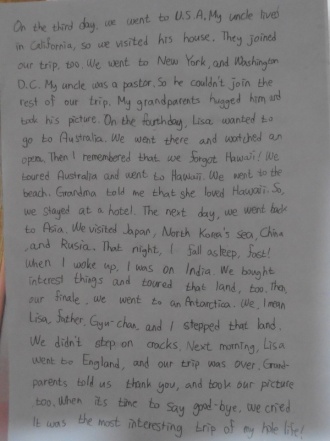 On the third day, we went to U.S.A. My uncle lived
in California, so we visited his house. They joined
our trip, too. We went to New York, and Washington
D.C. My uncle was a pastor. So he couldn't join the
rest of our trip. My grandparents hugged him, and
took his picture. On the fourthday, Lisa wanted to
go to Australia. We went there and watched an
opera. Then I remembered that we forgot Hawaii! We
toured Australia and went to Hawaii. We went to the
beach. Grandma told me that she loved Hawaii. So,
we stayed at a hotel. The next day, we went back
to Asia. We visited Japan, North Korea's sea, China
,and Rusia. That night, I fall asleep, fast!
When I woke up, I was on India. We bought
interest things and toured that land, too. Then,
our finale, we went to an Antarctica. We, I mean
Lisa, father, Gyu-chan, and I stepped that land.
We didn't step on cracks. Next morning, Lisa
went to England, and our trip was over. Grand-
parents told us thank you, and took our picture
too. When its time to say good-bye, we cried
It was the most interesting trip of my hole life!